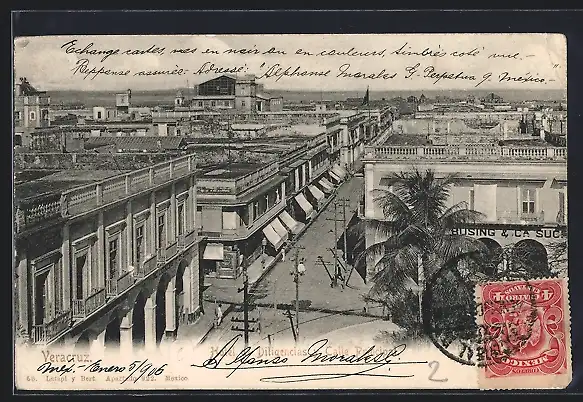 Echange cartes, vues en noir ou en couleurs, timbrés coté vue,-
Reppense assurée. Adresse: "Alphonse Morales G. Perpetua 9, México,-
BUSING & CA SUC
Veracruz.
Hotel Diligencias Calle
Mex.- Enero 5/906
Alfonso Morales
68. Latapi y Bert. Apartado 922. Mexico
2
4 CENTAVOS 4